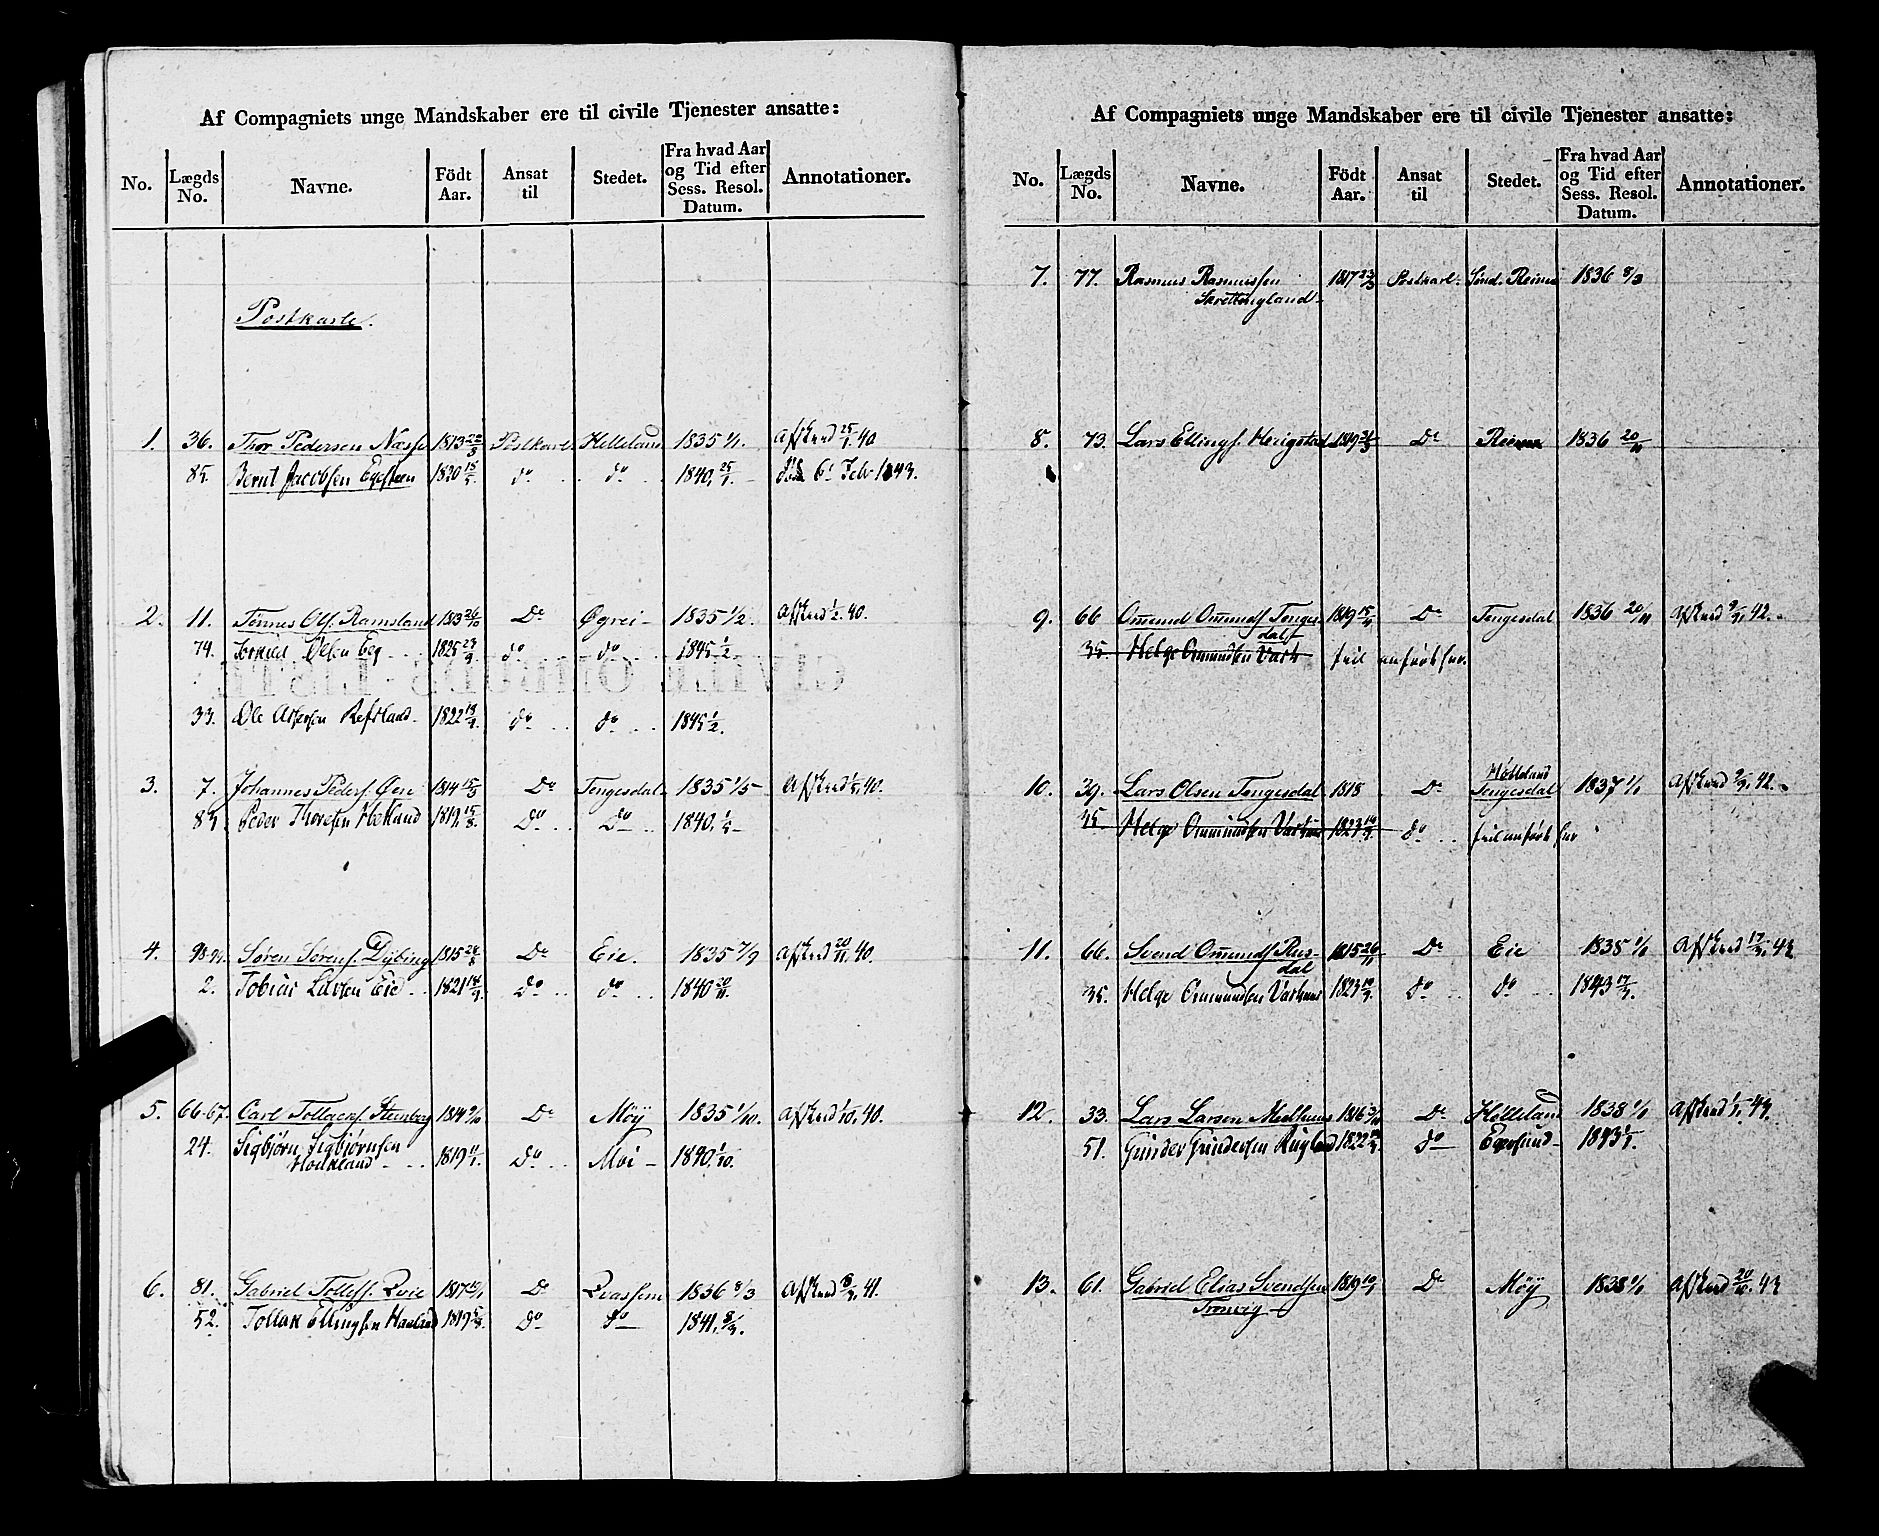 Af Compagniets unge Mandskaber ere til civile Tjenester ansatte:
No. Lægds No. Navne. Födt Aar. Ansat til Stedet. Fra hvad Aar og Tid efter Sess. Resol. Datum. Annotationer.
Postkarle.
1. 36. Thor Pedersen 1813 Postkarl Helleland 1835 1/1. Afskeed 25/1. 40
85. Bernt Jacobsen 1820 15/5 do do 1840. 25/1. død 6. Febr 1843.
2. 11. Tönnes Ols. Ramsland 1813 26/10 Do Øgrei 1835 1/2. Afskeed 1/2. 40.
74. Olsen Eeg 1825 23/9. do do 1845 1/2
33. Ole Refsland 1822 do do 1845 1/2.
3. 7. Johannes Peders. Øen 1814 15/3 Do Tengesdal 1835 1/5 Afskeed 1/5. 40.
85. Peder Thorsen 1819. 15/8. Do Do 1840. 1/5
4. Søren Sørens. Dybing 1815 Do Eie. 1835 7/9 Afskeed 20/11. 40.
2. Tobias Larsen Eie 1821 do do 1840 20/11.
5. 66-67. Carl Tollacks. Steenberg 1814 Do Møÿ 1835 1/10. Afskeed 1/10. 40.
24. Sigbjørn Sigbjørnsen
1819 11/1 Do Moi 1840. 1/10.
6. 81. Gabriel Tollefs. 1817 Do 1836 8/3 Afskeed 8/3. 41.
52. Tollak Ellingsen Haaland 1819 Do do 1841. 8/3.
Af Compagniets unge Mandskaber ere til civile Tjenester ansatte:
No. Lægds No. Navne. Födt Aar. Ansat til Stedet. Fra hvad Aar og Tid efter Sess. Resol. Datum. Annotationer.
7. 77. Rasmus Rasmussen 1817 23/3 Postkarl. Sönd. Reime 1836 8/3
Skrettingland
8. 73. Lars Ellings. Herigstad 1819 Do Reime 1836 20/11
9. 66 Ommund Ommunds. Tenges 1819 15/11 Do Tengesdal 1836 20/11 Afskeed 42.
dal
35. Helge Ommundsen feil anført her.
10. 39. Lars Olsen Tengesdal 1818 Do Hølleland
Tengesdal 1837 1/1 Afskeed 42.
35 Helge Ommundsen 1823 do feil anført her
11. 66. Svend Ommunds. Rus- 1815 26/11 Do Eie 1838 1/1 Afskeed 17/3. 43
dal
35. Helge Ommundsen 1823 do do 1843 17/3.
12. 33. Lars Larsen 1816 Do Hølleland 1838 1/1 Afskeed 1/1. 43.
51. Gunder Gundersen 1822 do Egersund 1843 1/1.
13. 61. Gabriel Elias Svendsen 1819 Do Møÿ 1838 1/1 Afskeed 20/10. 43
Tronvig